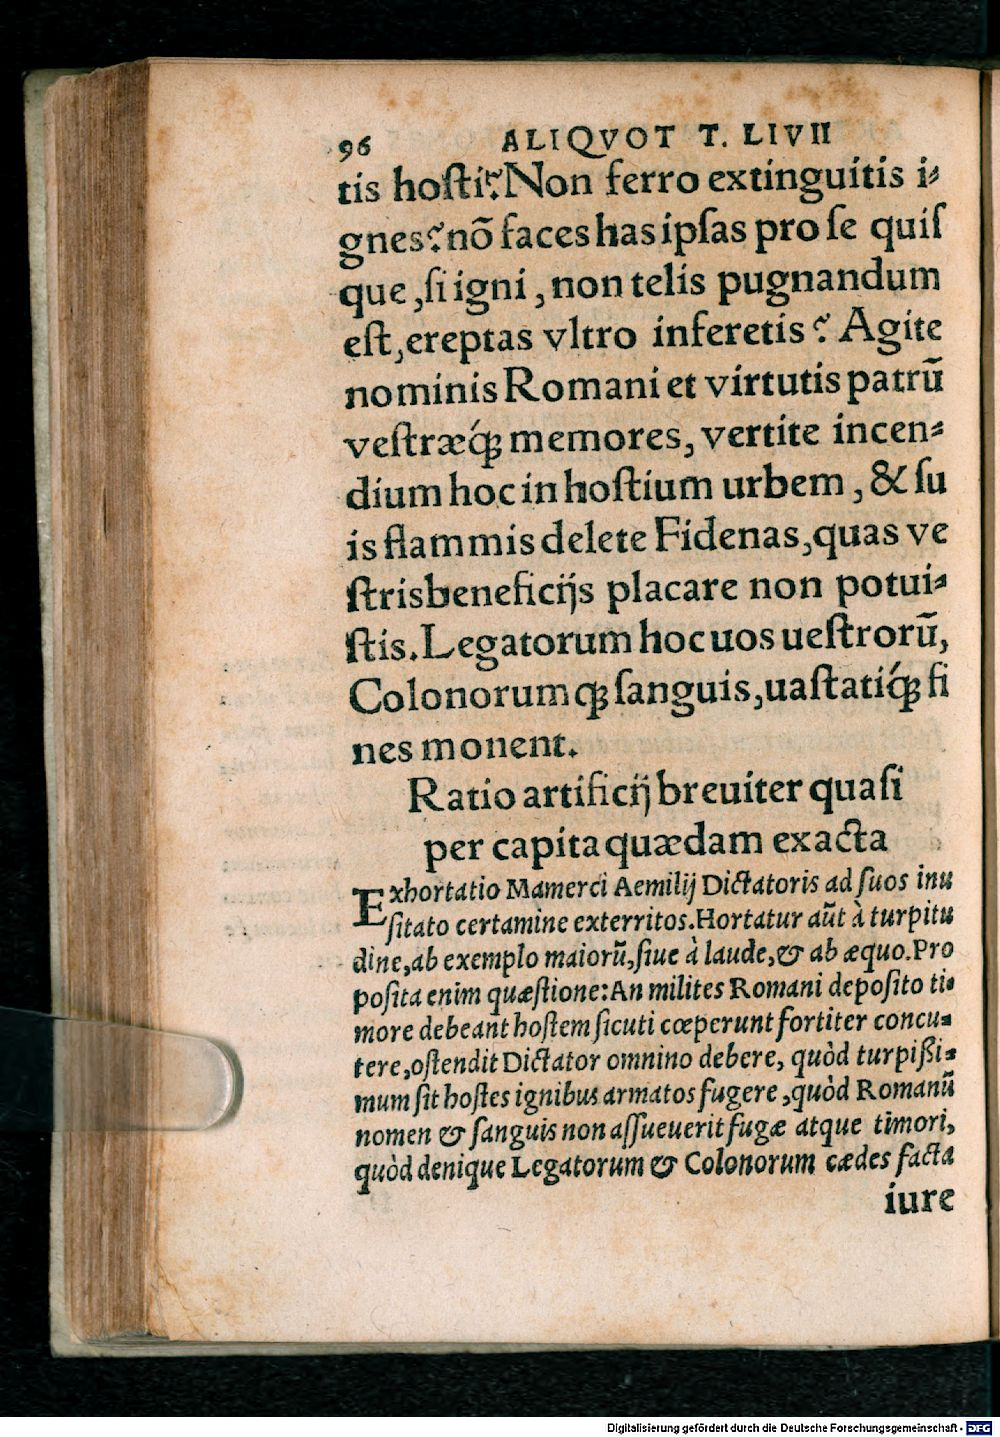 96 ALIQVOT T. LIVII
tis hosti? Non ferro extinguitis i-
gnes? nō faces has ipſas pro ſe quiſ
que, ſi igni, non telis pugnandum
eſt, ereptas vltro inferetis? Agite
nominis Romani et virtutis patrū
veſtræq́; memores, vertite incen-
dium hoc in hoſtium urbem, & ſu
is flammis delete Fidenas, quas ve
ſtris beneficijs placare non potui-
ſtis. Legatorum hoc uos ueſtrorū,
Colonorumq; ſanguis, uaſtatiq́; fi
nes monent.
Ratio artificij breuiter quaſi
per capita quædam exacta
Exhortatio Mamerci Aemilij Dictatoris ad ſuos inu
ſitato certamine exterritos. Hortatur aūt à turpitu
dine, ab exemplo maiorū, ſiue à laude, & ab æquo. Pro
poſita enim quæſtione: An milites Romani depoſito ti-
more debeant hoſtem ſicuti cœperunt fortiter concu-
tere, oſtendit Dictator omnino debere, quòd turpißi-
mum ſit hoſtes ignibus armatos fugere, quòd Romanū
nomen & ſanguis non aſſueuerit fugæ atque timori,
quòd denique Legatorum & Colonorum cædes facta
iure
Digitalisierung gefördert durch die Deutsche Forschungsgemeinschaft - DFG